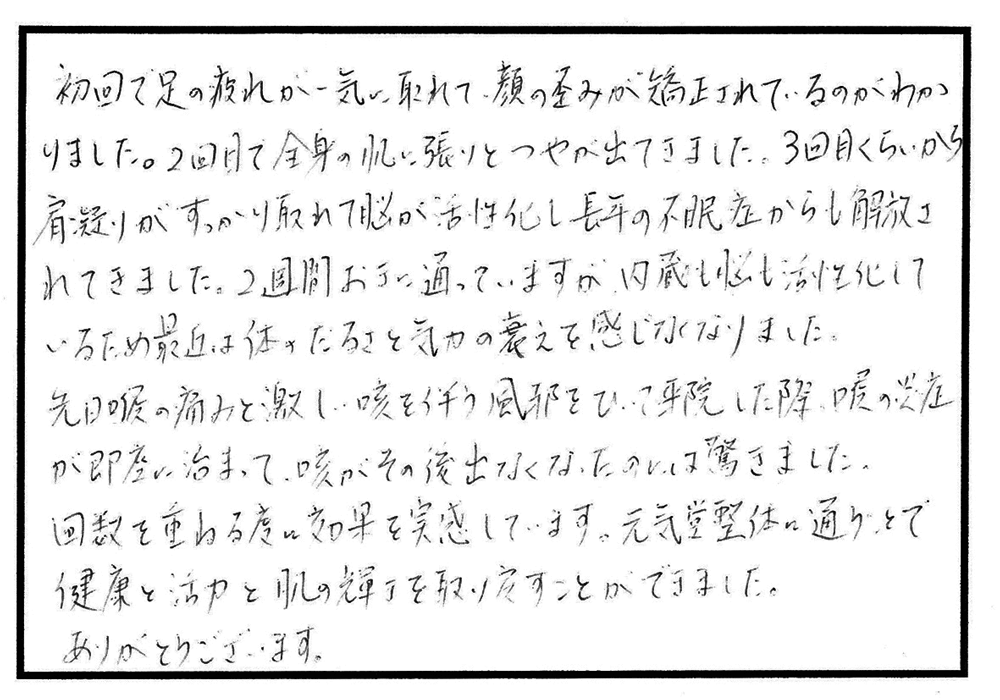 初回で足の疲れが一気に取れて、顔の歪みが矯正されているのがわか
りました。2回目で全身の肌に張りとつやが出てきました。3回目くらいから
肩凝りがすっかり取れて脳が活性化し長年の不眠症からも解放さ
れてきました。2週間おきに通っていますが、内蔵も脳も活性化して
いるため最近は体のだるさと気力の衰えを感じなくなりました。
先日喉の痛みと激しい咳を伴う風邪をひいて来院した際、喉の炎症
が即座に治まって、咳がその後出なくなったのには驚きました。
回数を重ねる度に効果を実感しています。元気堂整体に通うことで
健康と活力と肌の輝きを取り戻すことができました。
ありがとうございます。